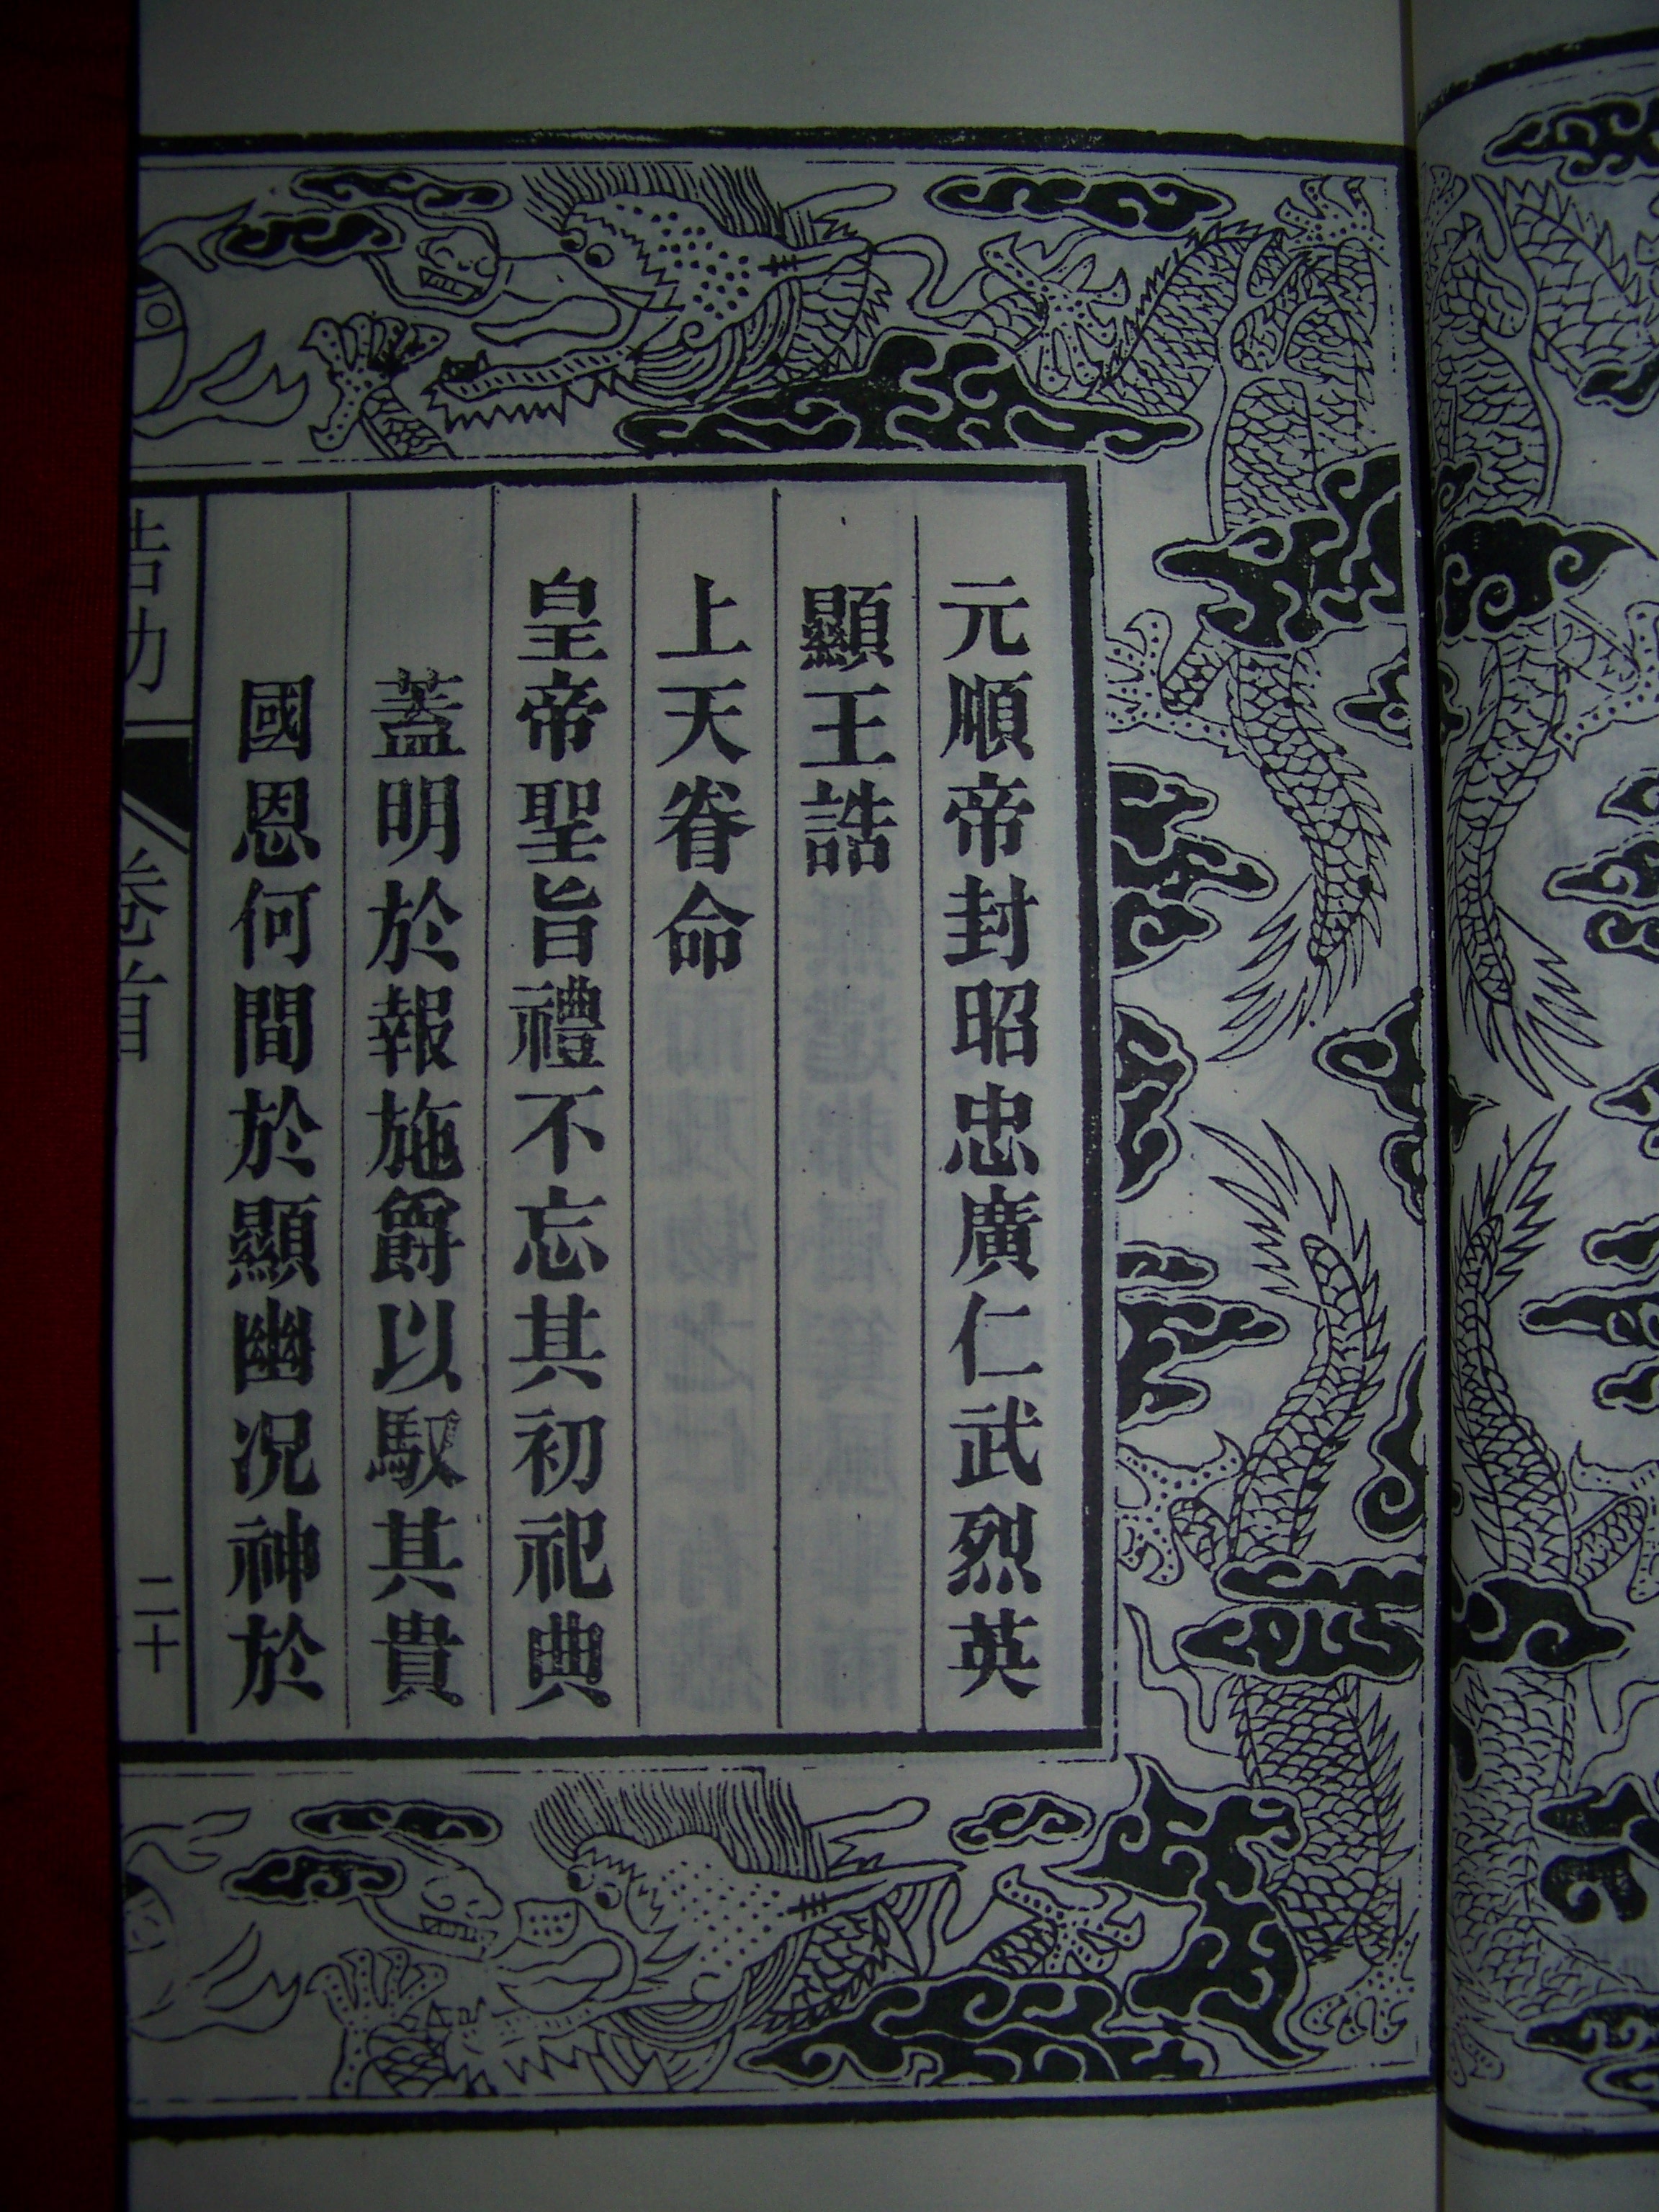 元順帝封昭忠廣仁武烈英
顯王誥
上天眷命
皇帝聖旨禮不忘其初祀典
蓋明於報施爵以馭其貴
國恩何間於顯幽况神於
卷首
二十